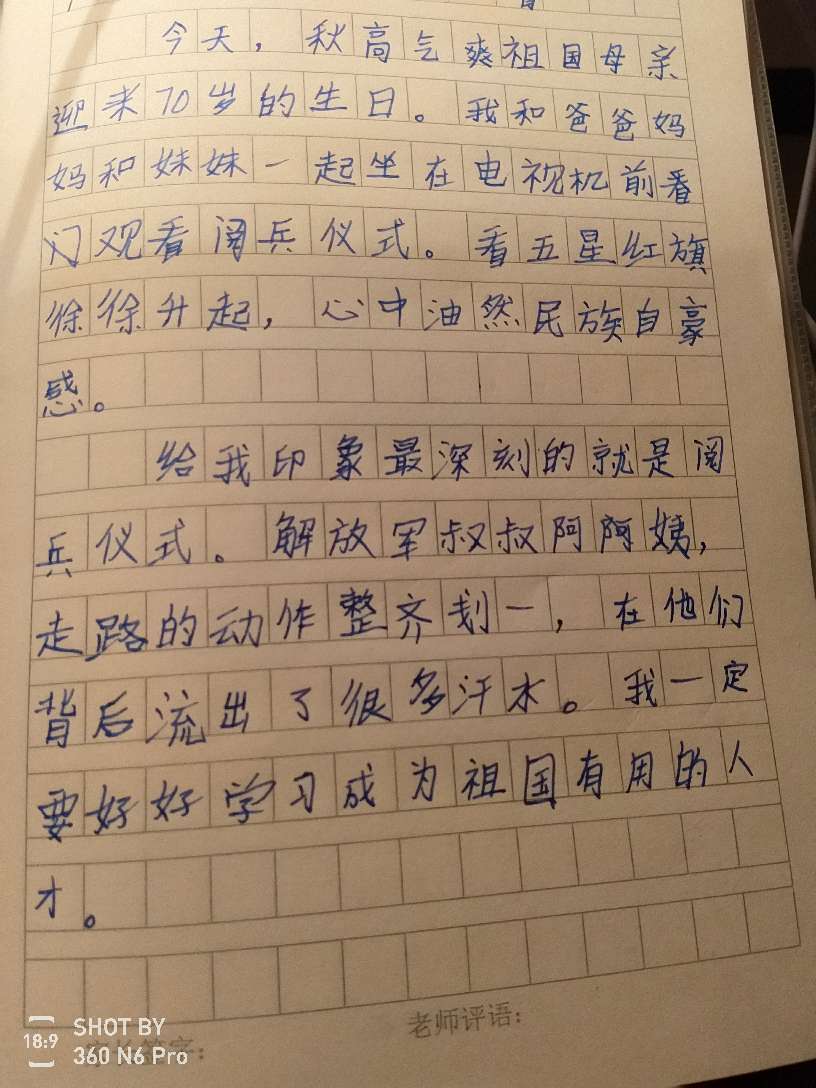 今天，秋高气爽祖国母亲
迎来70岁的生日。我和爸爸妈
妈和妹妹一起坐在电视机前看
观看阅兵仪式。看五星红旗
徐徐升起，心中油然民族自豪
感。
给我印象最深刻的就是阅
兵仪式。解放军叔叔阿阿姨，
走路的动作整齐划一，在他们
背后流出了很多汗水。我一定
要好好学习成为祖国有用的人
才。
老师评语：
家长签字：
18:9 SHOT BY
360 N6 Pro